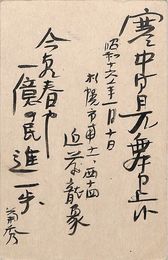 寒中御見舞申上
昭和十六年一月十日
札幌市南十一、西十四
近藤龍象
今是春
一億の民進一歩